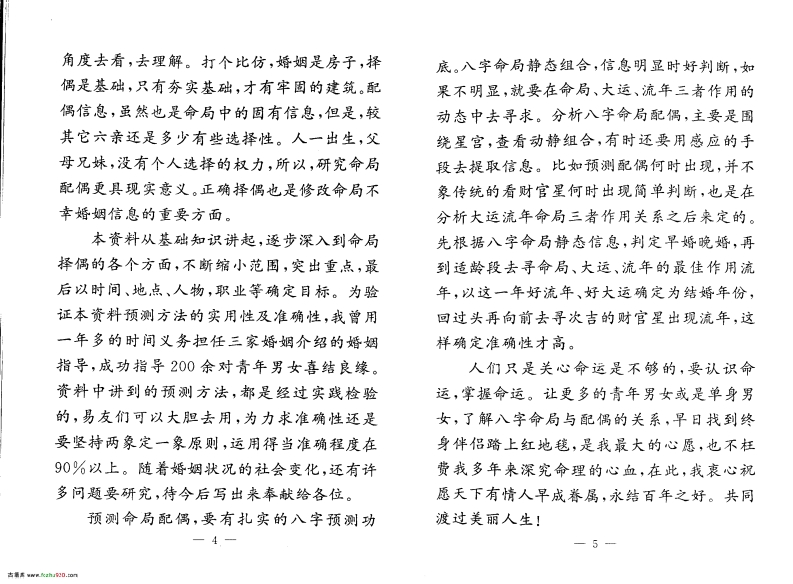 角度去看，去理解。打个比仿，婚姻是房子，择
偶是基础，只有夯实基础，才有牢固的建筑。配
偶信息，虽然也是命局中的固有信息，但是，较
其它六亲还是多少有些选择性。人一出生，父
母兄妹，没有个人选择的权力，所以，研究命局
配偶更具现实意义。正确择偶也是修改命局不
幸婚姻信息的重要方面。
本资料从基础知识讲起，逐步深入到命局
择偶的各个方面，不断缩小范围，突出重点，最
后以时间、地点、人物，职业等确定目标。为验
证本资料预测方法的实用性及准确性，我曾用
一年多的时间义务担任三家婚姻介绍的婚姻
指导，成功指导200余对青年男女喜结良缘。
资料中讲到的预测方法，都是经过实践检验
的，易友们可以大胆去用，为力求准确性还是
要坚持两象定一象原则，运用得当准确程度在
90％以上。随着婚姻状况的社会变化，还有许
多问题要研究，待今后写出来奉献给各位。
预测命局配偶，要有扎实的八字预测功
— 4 —
底。八字命局静态组合，信息明显时好判断，如
果不明显，就要在命局、大运、流年三者作用的
动态中去寻求。分析八字命局配偶，主要是围
绕星宫，查看动静组合，有时还要用感应的手
段去提取信息。比如预测配偶何时出现，并不
象传统的看财官星何时出现简单判断，也是在
分析大运流年命局三者作用关系之后来定的。
先根据八字命局静态信息，判定早婚晚婚，再
到适龄段去寻命局、大运、流年的最佳作用流
年，以这一年好流年、好大运确定为结婚年份，
回过头再向前去寻次吉的财官星出现流年，这
样确定准确性才高。
人们只是关心命运是不够的，要认识命
运，掌握命运。让更多的青年男女或是单身男
女，了解八字命局与配偶的关系，早日找到终
身伴侣踏上红地毯，是我最大的心愿，也不枉
费我多年来深究命理的心血，在此，我衷心祝
愿天下有情人早成眷属，永结百年之好。共同
渡过美丽人生！
— 5 —
古易库 www.fozhu920.com